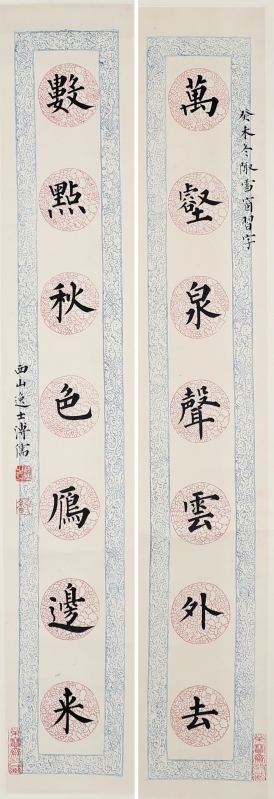 癸未冬陬雪窗習字
萬壑泉聲雲外去
數點秋色鴈邊来
西山逸士溥儒